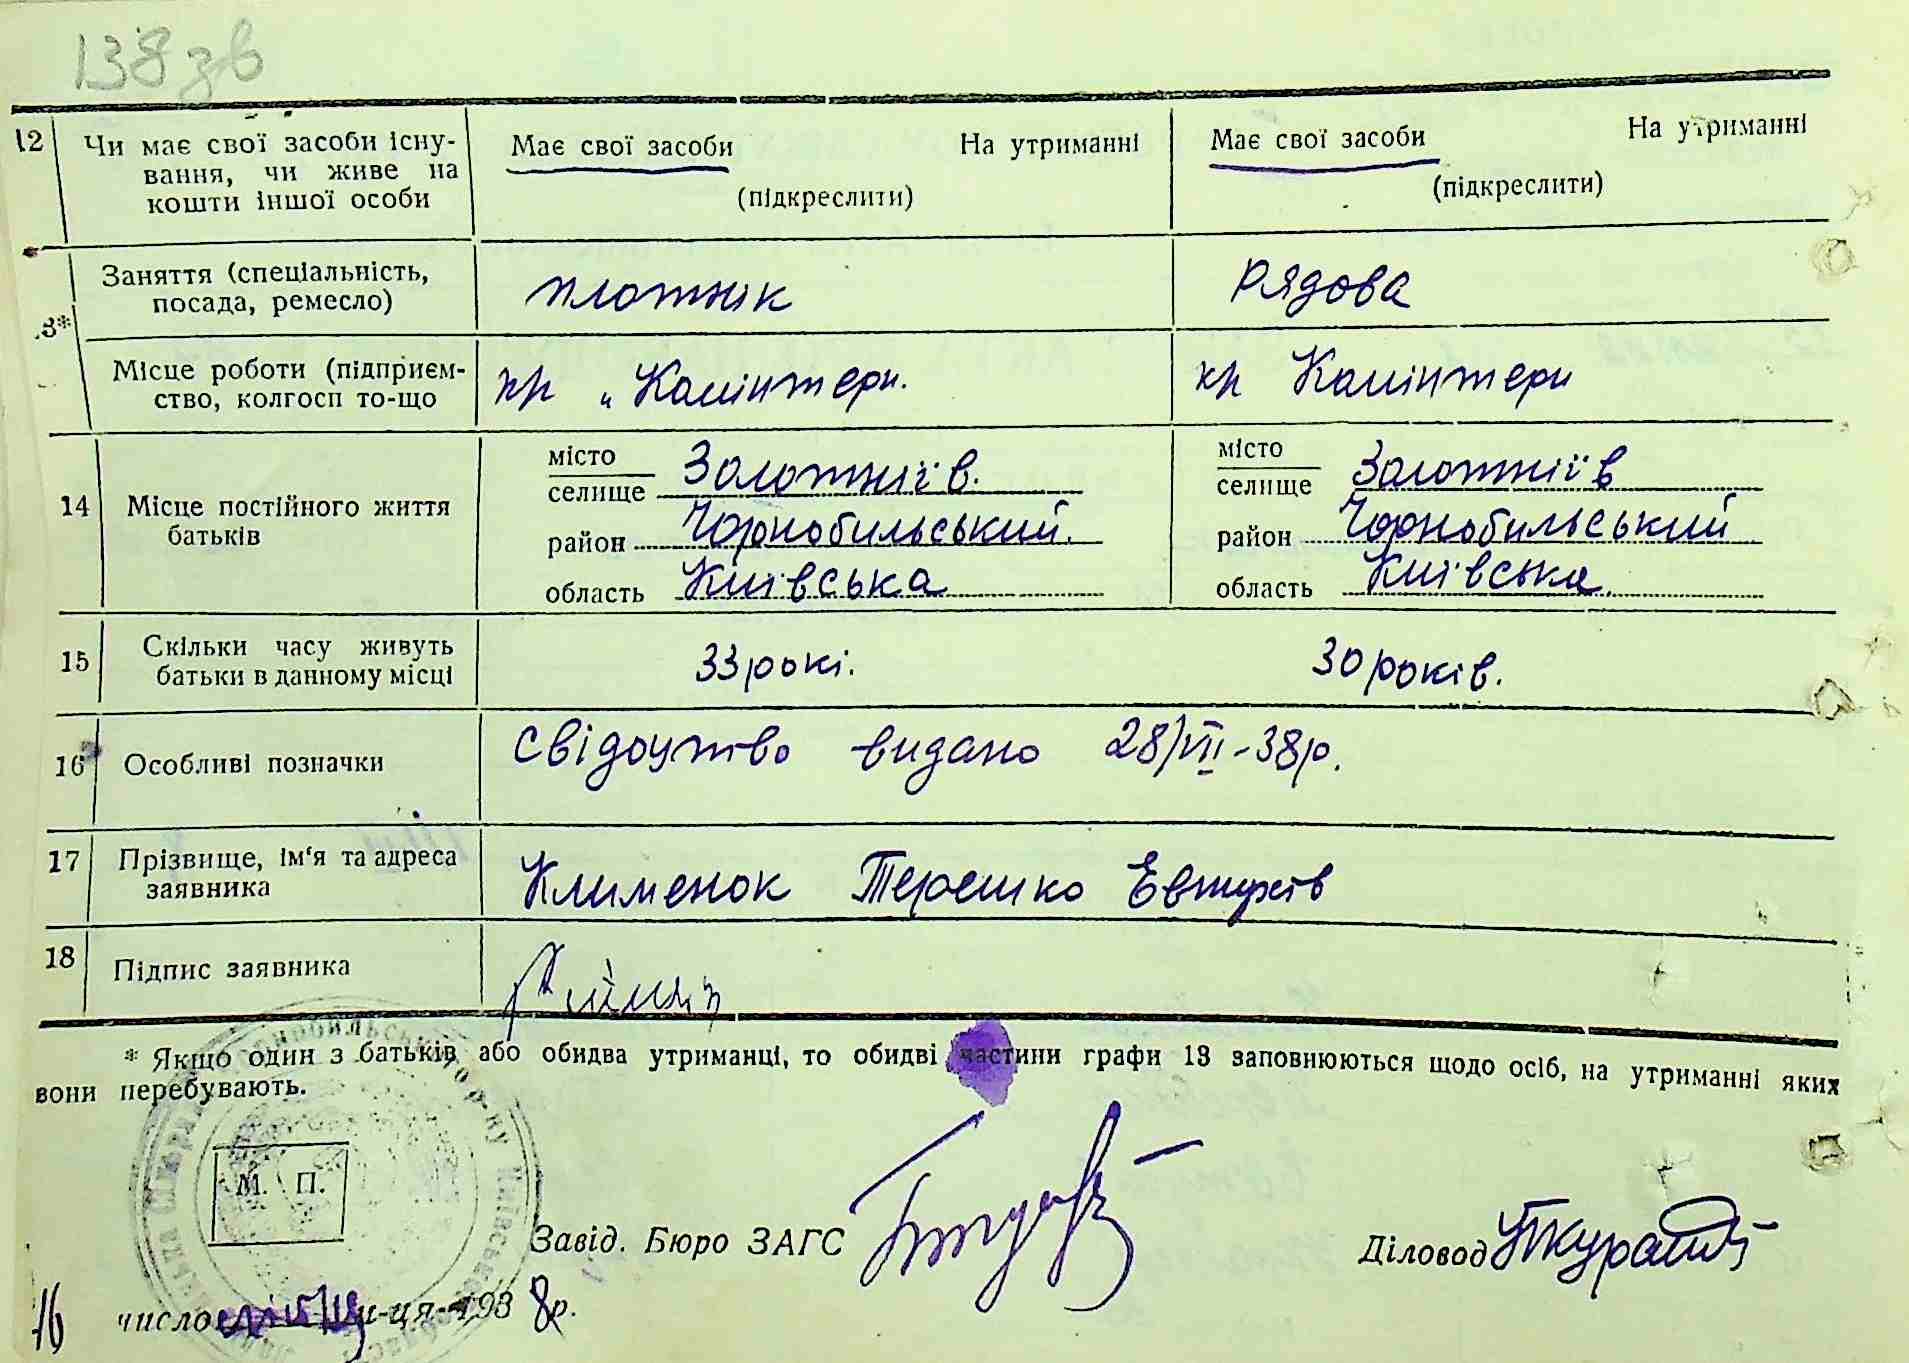 138 зв
12 Чи має свої засоби існу-
вання, чи живе на
кошти іншої особи
Має свої засоби На утриманні
(підкреслити)
Має свої засоби На утриманні
(підкреслити)
13* Заняття (спеціальність,
посада, ремесло)
плотнік
Рядова
Місце роботи (підприєм-
ство, колгосп то-що
кр „Комінтерн.
кр Комінтерн
14 Місце постійного життя
батьків
місто
селище Золотніїв.
район Чорнобильський.
область Київська
місто
селище Золотніїв
район Чорнобильський
область Київська.
15 Скільки часу живуть
батьки в данному місці
33 рокі.
30 років.
16 Особливі позначки
Свідоцтво видано 28/VII-38р.
17 Прізвище, ім'я та адреса
заявника
Клименок Терешко Евтухів
18 Підпис заявника
* Якщо один з батьків або обидва утриманці, то обидві частини графи 13 заповнюються щодо осіб, на утриманні яких
вони перебувають.
М. П.
Завід. Бюро ЗАГС
Діловод
16 число м-ця 1938р.